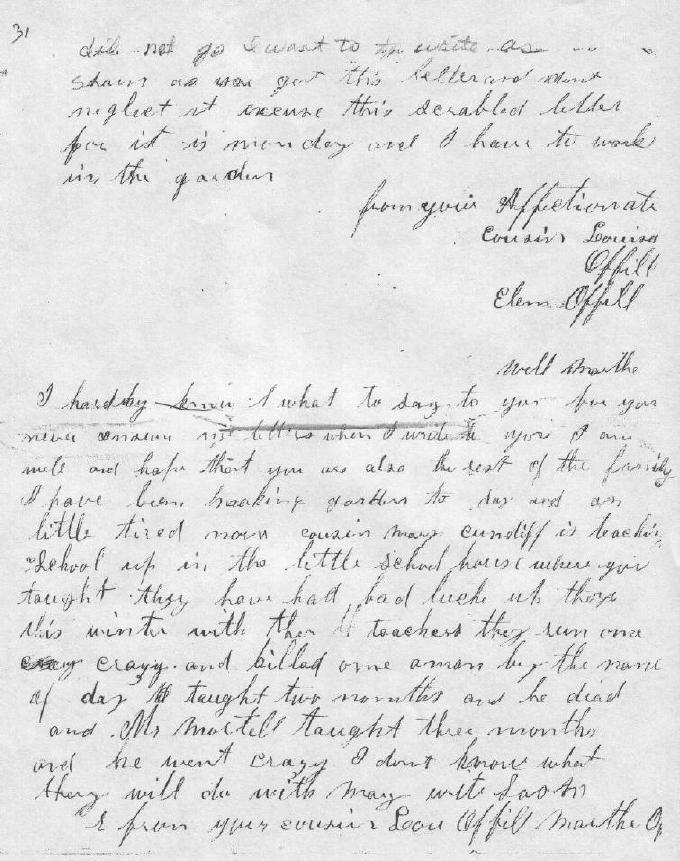 31
did not go I want to write as
shun as you get this letter and dont
neglect it excuse this scrabled letter
for it is monday and I have to work
in the garden
from your Affectionate
cousin Louisa
Offill
Elem Offill
Well Marthe
I hardby know what to say to you for you
never answer my letters when I write to you I am
well and hope that you are also the rest of the family
I have been making garden to day and am
little tired now cousin may cundiff is teaching
School up in the little school house where you
taught they have had bad luck up there
this winter with ther teachers they run one
crazy and killed one a man by the name
of day taught two months and he died
and Mr Martell taught three months
and he went crazy I dont know what
thay will do with may write soon
from your cousin Lou Offill Marthe Of